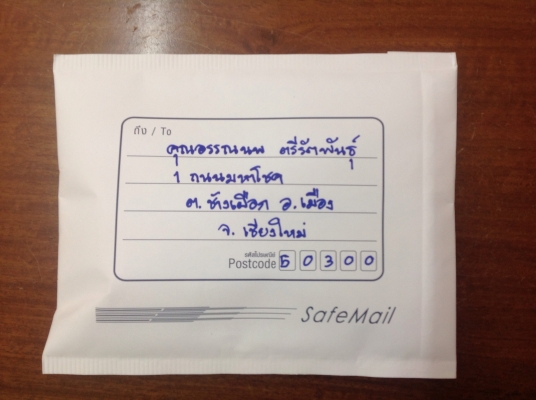 ถึง / To
คุณอรรณนพ ตรีรัตพันธุ์
1 ถนนมหาโชค
ต. ช้างเผือก อ. เมือง
จ. เชียงใหม่
รหัสไปรษณีย์
Postcode 50300
SafeMail